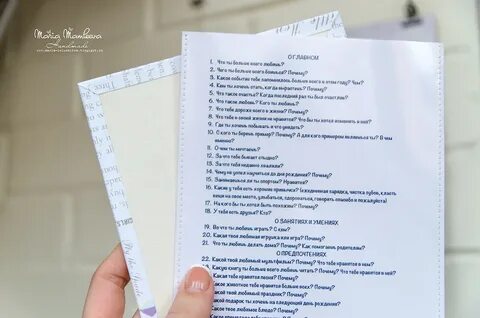 Maria Mambova
Handmade
О ГЛАВНОМ
1. Что ты больше всего любишь?
2. Чего ты больше всего боишься? Почему?
3. Какое событие тебе запомнилось больше всего в этом году? Чем?
4. Кем ты хочешь стать, когда вырастешь? Почему?
5. Что такое счастье? Когда последний раз ты был счастлив?
6. Что такое любовь? Кого ты любишь?
7. Что тебе дороже всего в жизни? Почему?
8. Что тебе в своей жизни не нравится? Что бы ты хотел изменить в ней?
9. Где ты хочешь побывать и что увидеть?
10. С кого ты берешь пример? Почему? А для кого примером являешься ты? В чем
именно?
11. О чем ты мечтаешь?
12. За что тебе бывает стыдно?
13. За что тебя недавно хвалили?
14. Чему ты успел научиться до дня рождения? Почему?
15. Занимаешься ли ты спортом? Нравится?
16. Какие у тебя есть хорошие привычки? (ежедневная зарядка, чистка зубов, класть
вещи на свое место, улыбаться, здороваться, говорить спасибо и пожалуйста)
17. На кого бы ты хотел быть похожим? Почему?
18. У тебя есть друзья? Кто?
О ЗАНЯТИЯХ И УМЕНИЯХ
19. Во что ты любишь играть? С кем?
20. Какая твоя любимая игрушка или игра? Почему?
21. Что ты любишь делать дома? Почему? Как помогаешь родителям?
О ПРЕДПОЧТЕНИЯХ
22. Какой твой любимый мультфильм? Почему? Что тебе нравится в нем?
Какую книгу ты больше всего любишь читать? Почему? Что тебе нравится в ней?
Какое животное тебе нравится больше всех? Почему?
Какой твой любимый праздник? Почему?
Какой подарок ты хочешь на следующий день рождения?
твое любимое блюдо? Почему?